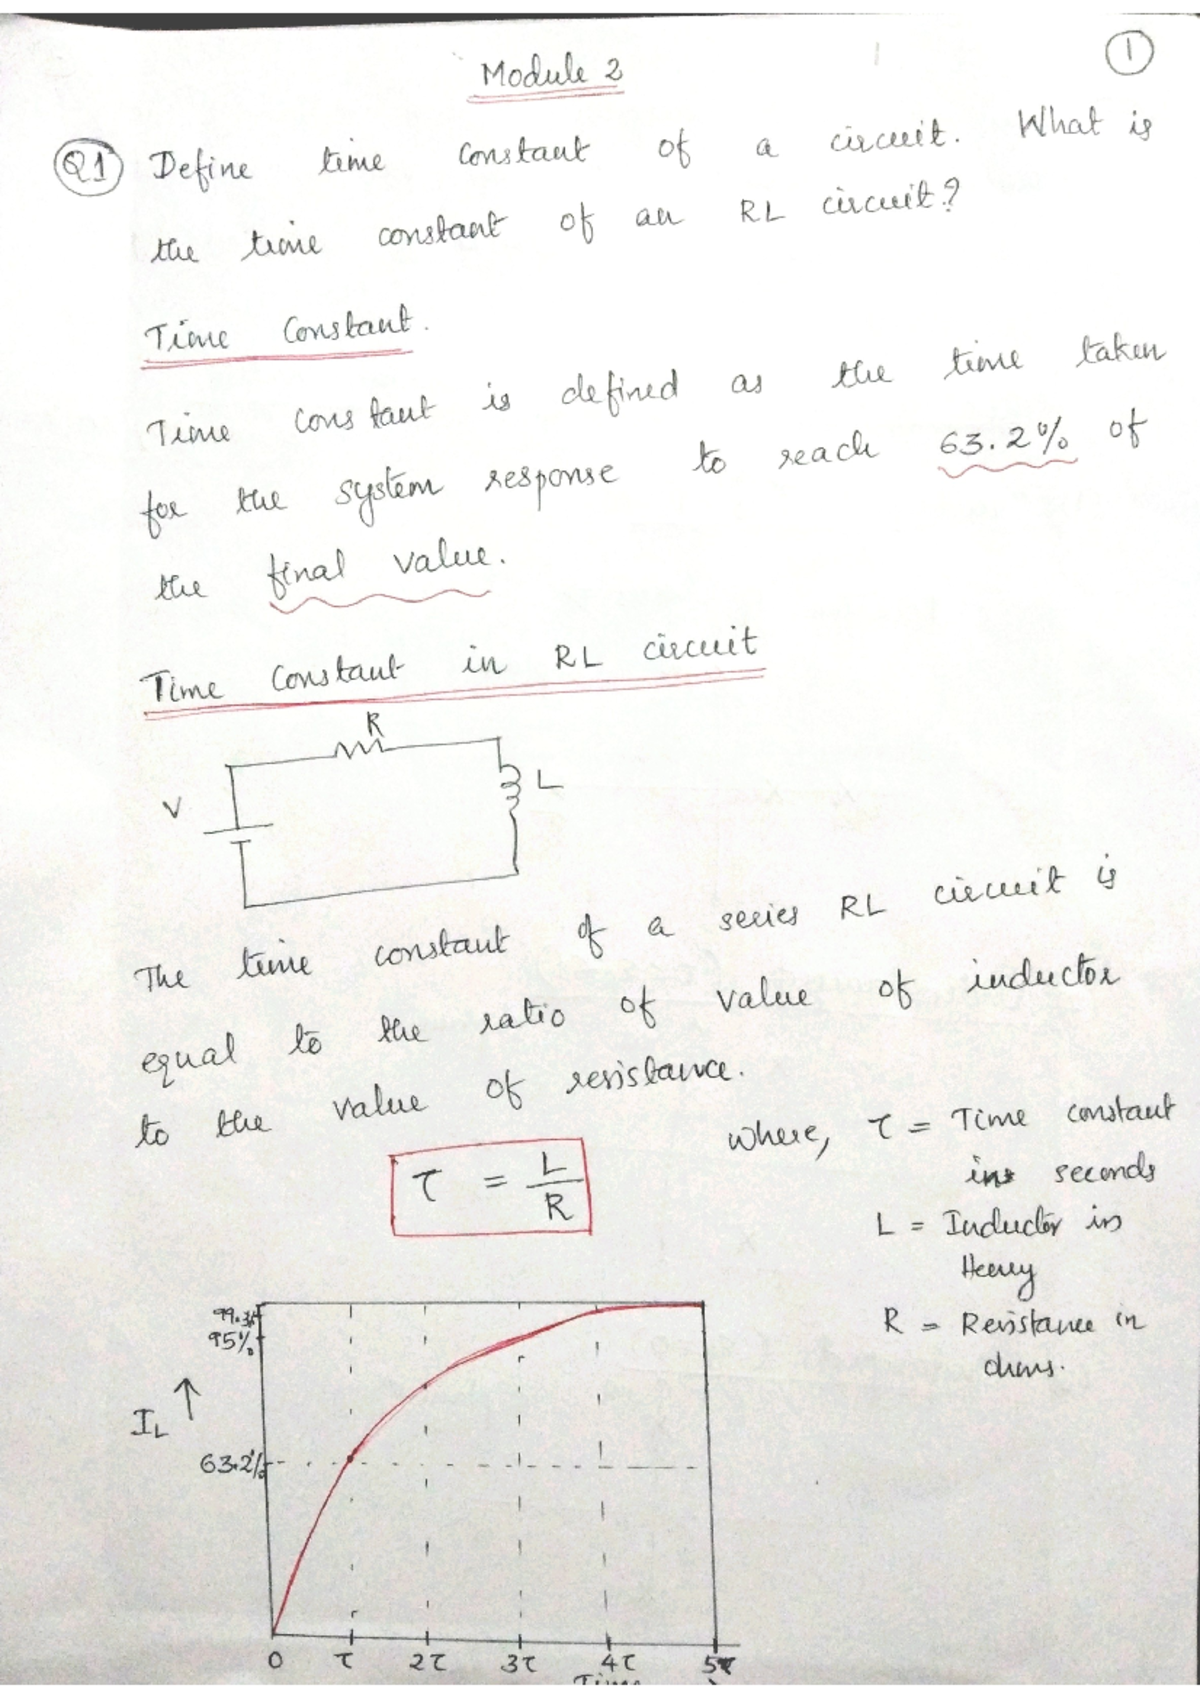 1
Module 2
Q1 Define time constant of a circuit. What is
the time constant of an RL circuit?
Time Constant.
Time constant is defined as the time taken
for the system response to reach 63.2% of
the final value.
Time Constant in RL circuit
R
V
L
The time constant of a series RL circuit is
equal to the ratio of value of inductor
to the value of resistance.
τ = L/R
where, τ = Time constant
in seconds
L = Inductor in
Henry
R = Resistance in
ohms.
95%
IL ↑
63.2%
0 τ 2τ 3τ 4τ 5τ
Time